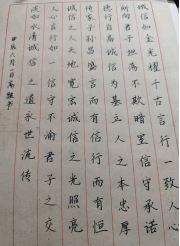 诚信如金光耀千古言行一致人心
所向君子坦荡不欺暗室信守承诺
德行自高诚信为基立人之本忠厚
传家子孙昌盛言而有信行而有恒
诚信之人天地宽宏诚信之光照亮
人心言行如一信守不渝君子之交
淡如水清诚信之道永世流传
甲辰八月